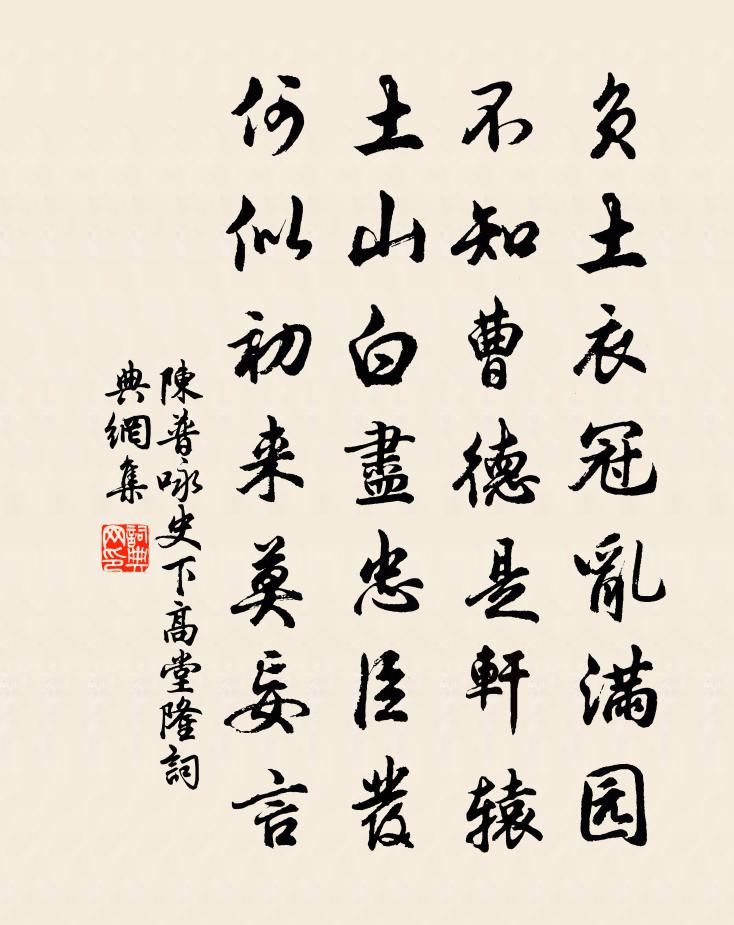 负土衣冠亂满园
不知曹德是軒辕
土山白盡忠臣髮
何似初来莫妄言
陳普咏史下高堂隆詞
典網集
詞典
网印